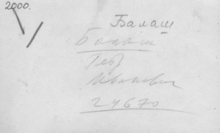 2000.
Балаш
Балаш
Пётр
Иванович
24670